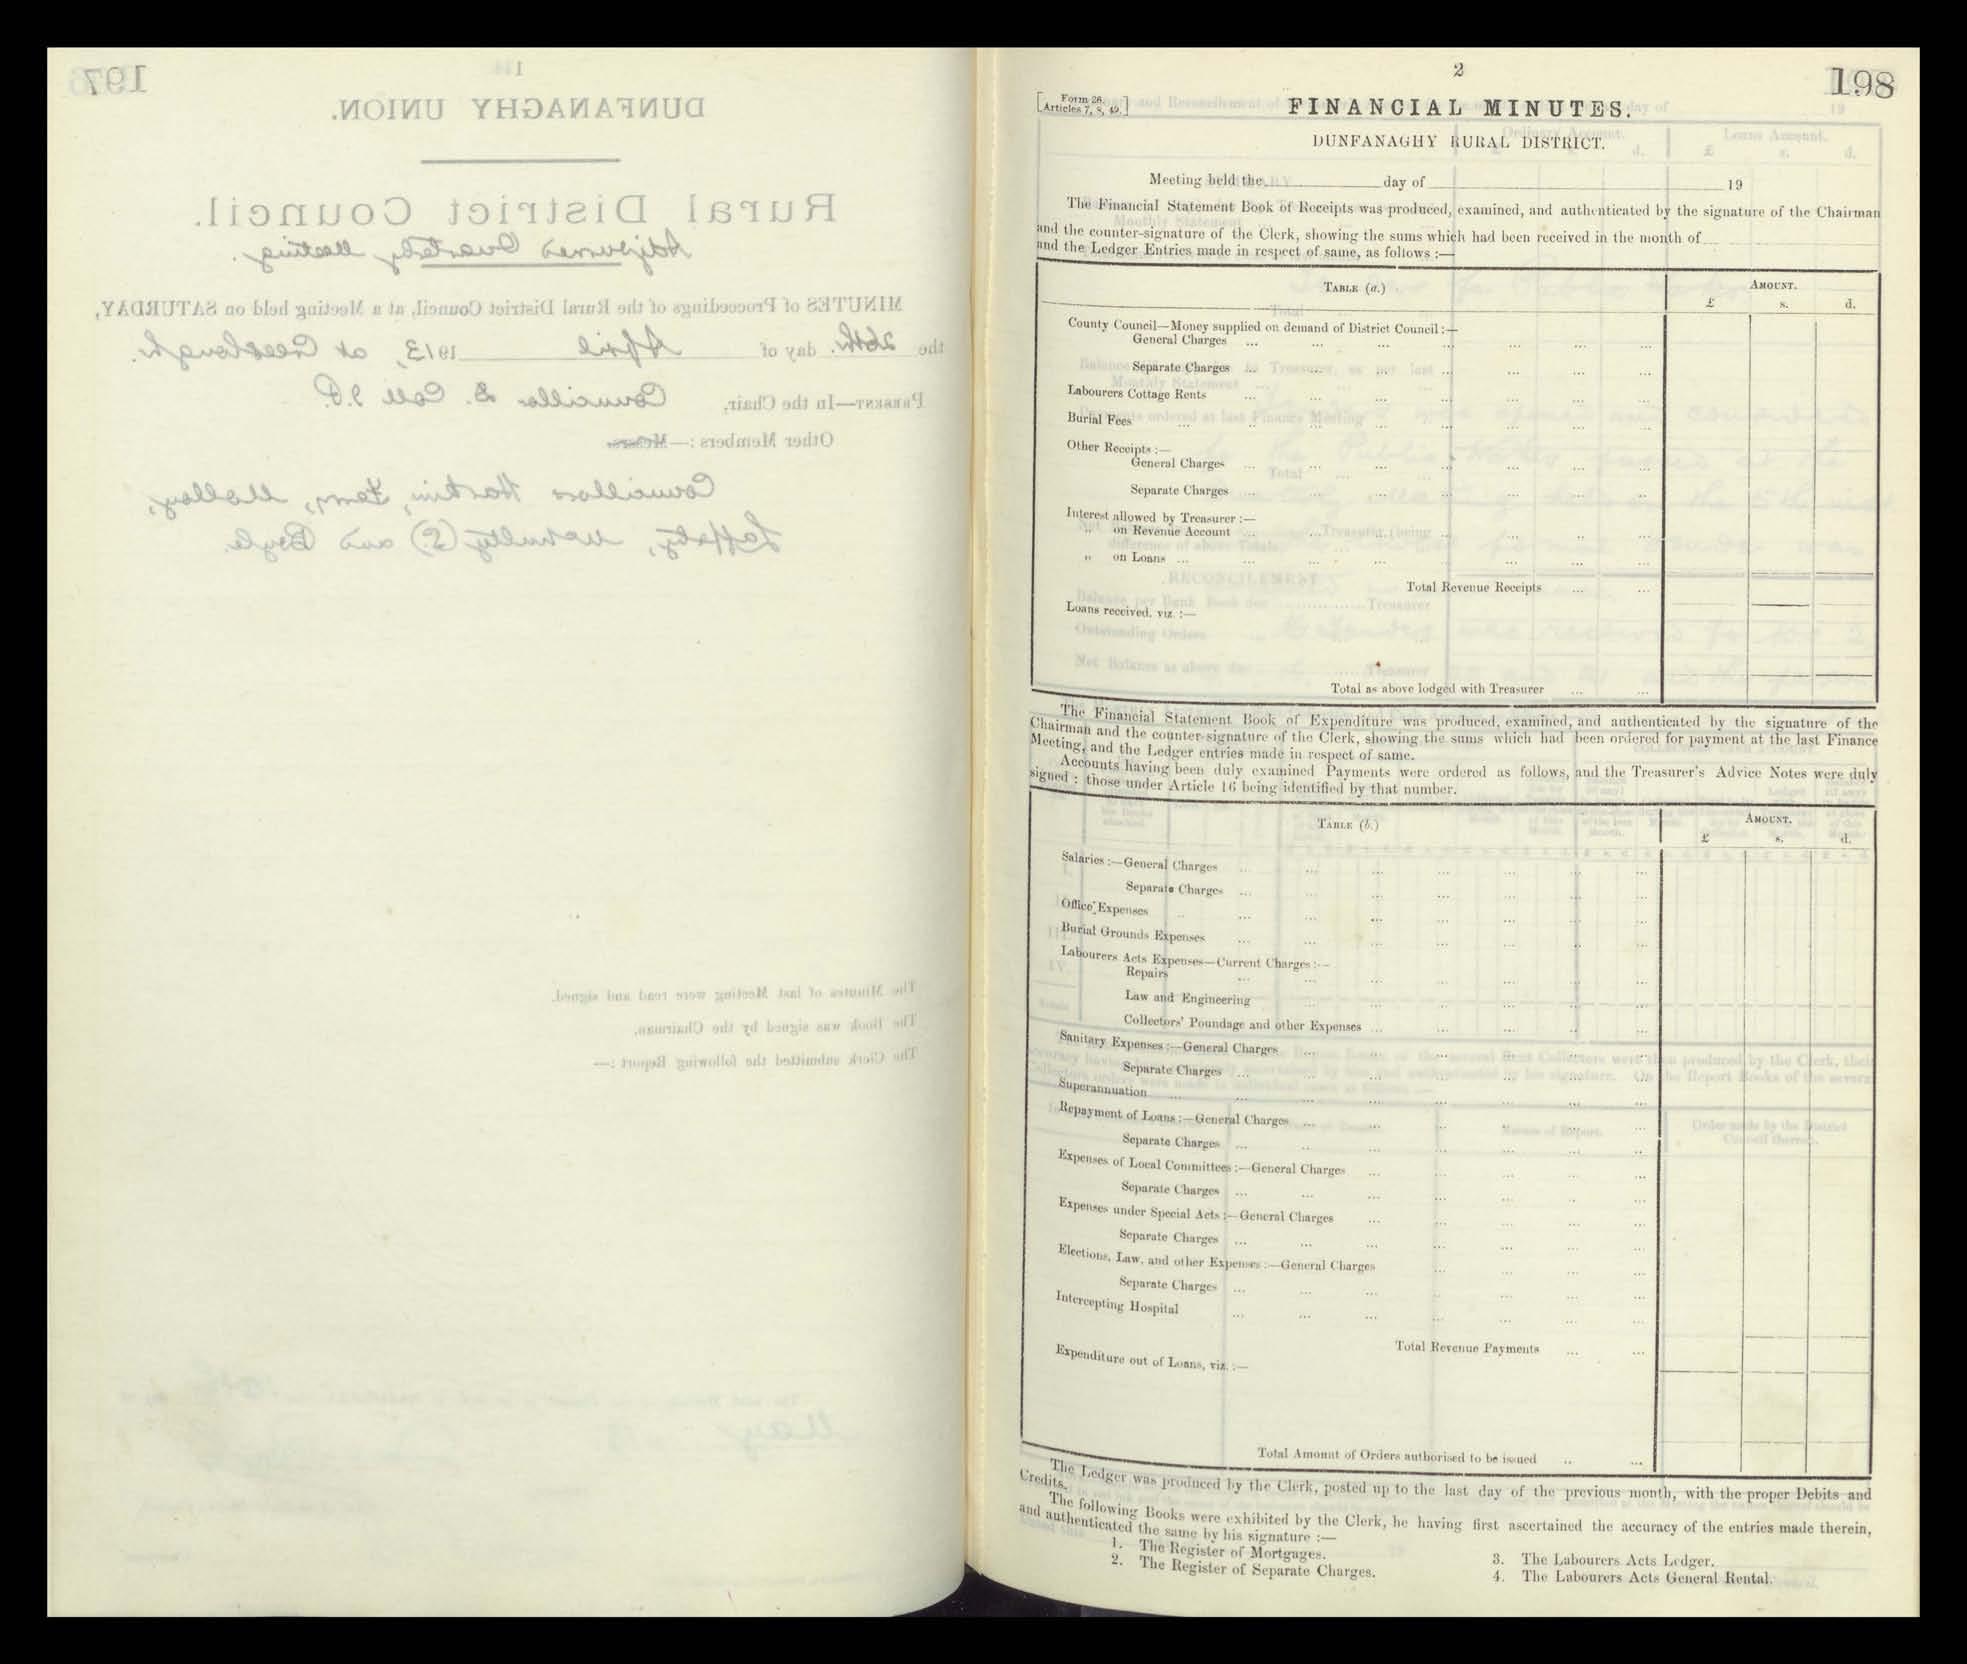 197
1
DUNFANAGHY UNION.
Rural District Council.
Adjourned Quarterly Meeting.
MINUTES of Proceedings of the Rural District Council, at a Meeting held on SATURDAY,
the 26th. day of April 1913, at Creeslough.
PRESENT—In the Chair, Councillor B. Coll J.P.
Other Members :—Messrs.
Councillors Harkin, Ferry, Molloy,
Lafferty, McNulty (S.) and Boyle.
The Minutes of last Meeting were read and signed.
The Book was signed by the Chairman.
The Clerk submitted the following Report :—
2
198
[Form 26. Articles 7, 8, 49.]
FINANCIAL MINUTES.
DUNFANAGHY RURAL DISTRICT.
Meeting held the day of 19
The Financial Statement Book of Receipts was produced, examined, and authenticated by the signature of the Chairman
and the counter-signature of the Clerk, showing the sums which had been received in the month of
and the Ledger Entries made in respect of same, as follows :—
TABLE (a.) AMOUNT.
£ s. d.
County Council—Money supplied on demand of District Council :—
General Charges ... ... ... ... ... ... ...
Separate Charges ... ... ... ... ... ... ...
Labourers Cottage Rents ... ... ... ... ... ... ...
Burial Fees ... ... ... ... ... ... ... ...
Other Receipts :—
General Charges ... ... ... ... ... ... ...
Separate Charges ... ... ... ... ... ... ...
Interest allowed by Treasurer :—
„ on Revenue Account ... ... ... ... ... ... ...
„ on Loans ... ... ... ... ... ... ... ...
Total Revenue Receipts ... ...
Loans received, viz. :—
Total as above lodged with Treasurer ... ...
The Financial Statement Book of Expenditure was produced, examined, and authenticated by the signature of the
Chairman and the counter-signature of the Clerk, showing the sums which had been ordered for payment at the last Finance
Meeting, and the Ledger entries made in respect of same.
Accounts having been duly examined Payments were ordered as follows, and the Treasurer's Advice Notes were duly
signed : those under Article 16 being identified by that number.
TABLE (b.) AMOUNT.
£ s. d.
Salaries :—General Charges ... ... ... ... ... ... ...
Separate Charges ... ... ... ... ... ... ...
Office Expenses ... ... ... ... ... ... ... ...
Burial Grounds Expenses ... ... ... ... ... ... ...
Labourers Acts Expenses—Current Charges :—
Repairs ... ... ... ... ... ... ...
Law and Engineering ... ... ... ... ... ...
Collectors' Poundage and other Expenses ... ... ... ... ...
Sanitary Expenses :—General Charges ... ... ... ... ... ...
Separate Charges ... ... ... ... ... ... ...
Superannuation ... ... ... ... ... ... ... ...
Repayment of Loans :—General Charges ... ... ... ... ... ...
Separate Charges ... ... ... ... ... ... ...
Expenses of Local Committees :—General Charges ... ... ... ... ...
Separate Charges ... ... ... ... ... ... ...
Expenses under Special Acts :—General Charges ... ... ... ... ...
Separate Charges ... ... ... ... ... ... ...
Elections, Law, and other Expenses :—General Charges ... ... ... ...
Separate Charges ... ... ... ... ... ... ...
Intercepting Hospital ... ... ... ... ... ... ...
Total Revenue Payments ... ...
Expenditure out of Loans, viz. :—
Total Amount of Orders authorised to be issued ... ...
The Ledger was produced by the Clerk, posted up to the last day of the previous month, with the proper Debits and
Credits.
The following Books were exhibited by the Clerk, he having first ascertained the accuracy of the entries made therein,
and authenticated the same by his signature :—
1. The Register of Mortgages.
2. The Register of Separate Charges.
3. The Labourers Acts Ledger.
4. The Labourers Acts General Rental.